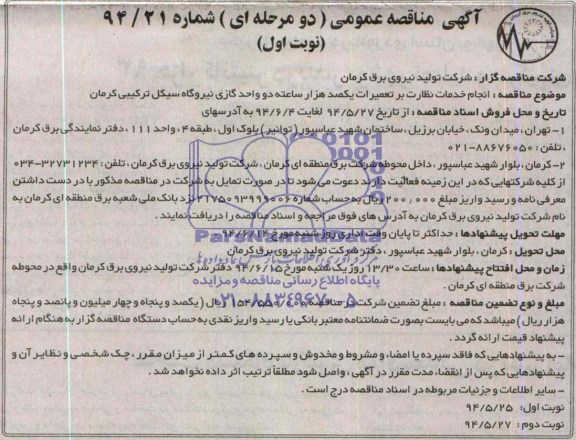 آگهی مناقصه عمومی ( دو مرحله ای ) شماره ۲۱ / ۹۴
(نوبت اول)
شرکت مناقصه گزار : شرکت تولید نیروی برق کرمان
موضوع مناقصه : انجام خدمات نظارت بر تعمیرات یکصد هزار ساعته دو واحد گازی نیروگاه سیکل ترکیبی کرمان
تاریخ و محل فروش اسناد مناقصه : از تاریخ ۹۴/۵/۲۷ لغایت ۹۴/۶/۴ به آدرسهای
۱- تهران ، میدان ونک ، خیابان برزیل ، ساختمان شهید عباسپور ( توانیر ) بلوک اول ، طبقه ۴ ، واحد ۱۱۱ ، دفتر نمایندگی برق کرمان
، تلفن : ۸۸۶۷۶۰۵۰-۰۲۱
۲- کرمان ، بلوار شهید عباسپور ، داخل محوطه شرکت برق منطقه ای کرمان ، شرکت تولید نیروی برق کرمان ، تلفن : ۳۲۷۳۱۲۳۴-۰۳۴
از کلیه شرکتهایی که در این زمینه فعالیت دارند دعوت می شود تا در صورت تمایل به شرکت در مناقصه مذکور با در دست داشتن
معرفی نامه و رسید واریز مبلغ ۲۰۰٫۰۰۰ ریال به حساب شماره ۲۱۷۵۰۹۳۹۹۰۰۶ نزد بانک ملی شعبه برق منطقه ای کرمان به
نام شرکت تولید نیروی برق کرمان به آدرس های فوق مراجعه و اسناد مناقصه را دریافت نمایند .
مهلت تحویل پیشنهادها : حداکثر تا پایان وقت اداری روز شنبه مورخ ۹۴/۶/۱۴
محل تحویل : کرمان ، بلوار شهید عباسپور ، دفتر شرکت تولید نیروی برق کرمان
زمان و محل افتتاح پیشنهادها : ساعت ۱۳/۳۰ روز یک شنبه مورخ ۹۴/۶/۱۵ دفتر شرکت تولید نیروی برق کرمان واقع در محوطه
شرکت برق منطقه ای کرمان .
مبلغ و نوع تضمین مناقصه : مبلغ تضمین شرکت در مناقصه ریال ( یکصد و پنجاه و چهار میلیون و پانصد و پنجاه
هزار ریال ) میباشد که می بایست بصورت ضمانتنامه معتبر بانکی یا رسید واریز نقدی به حساب دستگاه مناقصه گزار به هنگام ارائه
پیشنهاد قیمت ارائه گردد .
- به پیشنهادهایی که فاقد سپرده یا امضاء و مشروط و مخدوش و سپرده های کمتر از میزان مقرر ، چک شخصی و نظایر آن و
پیشنهادهایی که پس از انقضاء مدت مقرر در آگهی ، واصل شود مطلقاً ترتیب اثر داده نخواهد شد .
- سایر اطلاعات و جزئیات مربوطه در اسناد مناقصه درج است .
نوبت اول : ۹۴/۵/۲۵
نوبت دوم : ۹۴/۵/۲۷
ParsNamadData
پایگاه اطلاع رسانی مناقصه و مزایده
۰۲۱-۸۸۳۴۹۶۷۰-۵